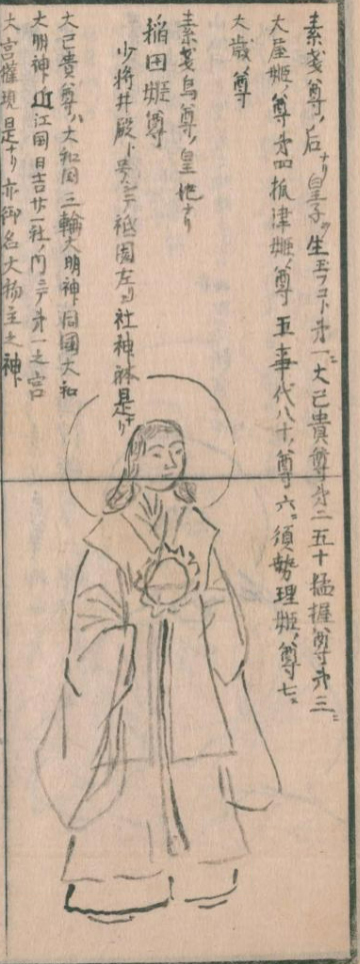 素戔尊ノ后ナリ皇子ヲ生玉フコト第一ニ大己貴尊第二五十猛握尊第三ニ
大屋姫ノ尊第四抓津姫ノ尊五事代八十ノ尊六ニ須勢理姫ノ尊七ニ
大歳尊
素戔烏尊ノ皇他ナリ
稲田姫尊
少将井殿ト号シテ祇園左ノ社神躰是ナリ
大己貴尊ハ大和国三輪大明神同国大和
大明神近江国日吉廿一社ノ門ニテ第一之宮
大宮権現是ナリ亦御名大物主之神